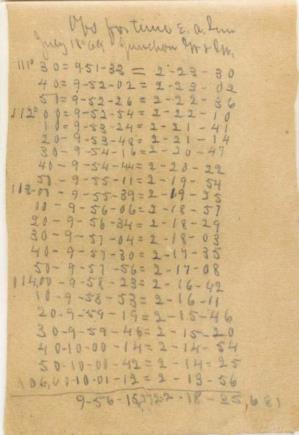 Obs for time E. a. Sun
July 18th 69. Junction Gr & Gr.
111° 30 = 9-51-33 = 2-23-30
40 = 9-52-02 = 2-23-02
50 = 9-52-26 = 2-22-36
112° 00 = 9-52-54 = 2-22-10
10 = 9-53-24 = 2-21-41
20 - 9-53-48 = 2-21-14
30 - 9-54-19 = 2-20-47
40 - 9-54-44 = 2-20-22
50 - 9-55-11 = 2-19-54
113-00 - 9-55-39 = 2-19-25
10 - 9-56-06 = 2-18-57
20 - 9-56-34 = 2-18-29
30 - 9-57-04 = 2-18-03
40 - 9-57-30 = 2-17-35
50 - 9-57-56 = 2-17-08
114,00 - 9-58-23 = 2-16-42
10 - 9-58-53 = 2-16-11
20 - 9-59-19 = 2-15-46
30 - 9-59-46 = 2-15-20
40 - 10-00-14 = 2-14-54
50 - 10-00-42 = 2-14-25
10-01-12 = 2-13-56
9-56-15